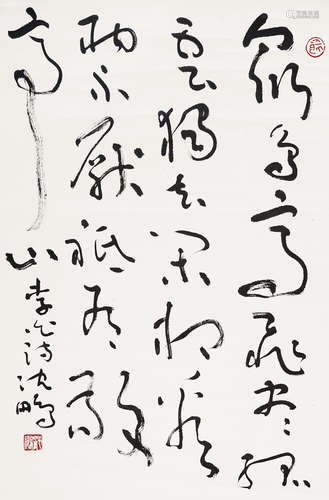 眾鳥高飛盡孤
雲獨去閑相看
兩不厭祗有敬
亭
山
李白詩沈鵬